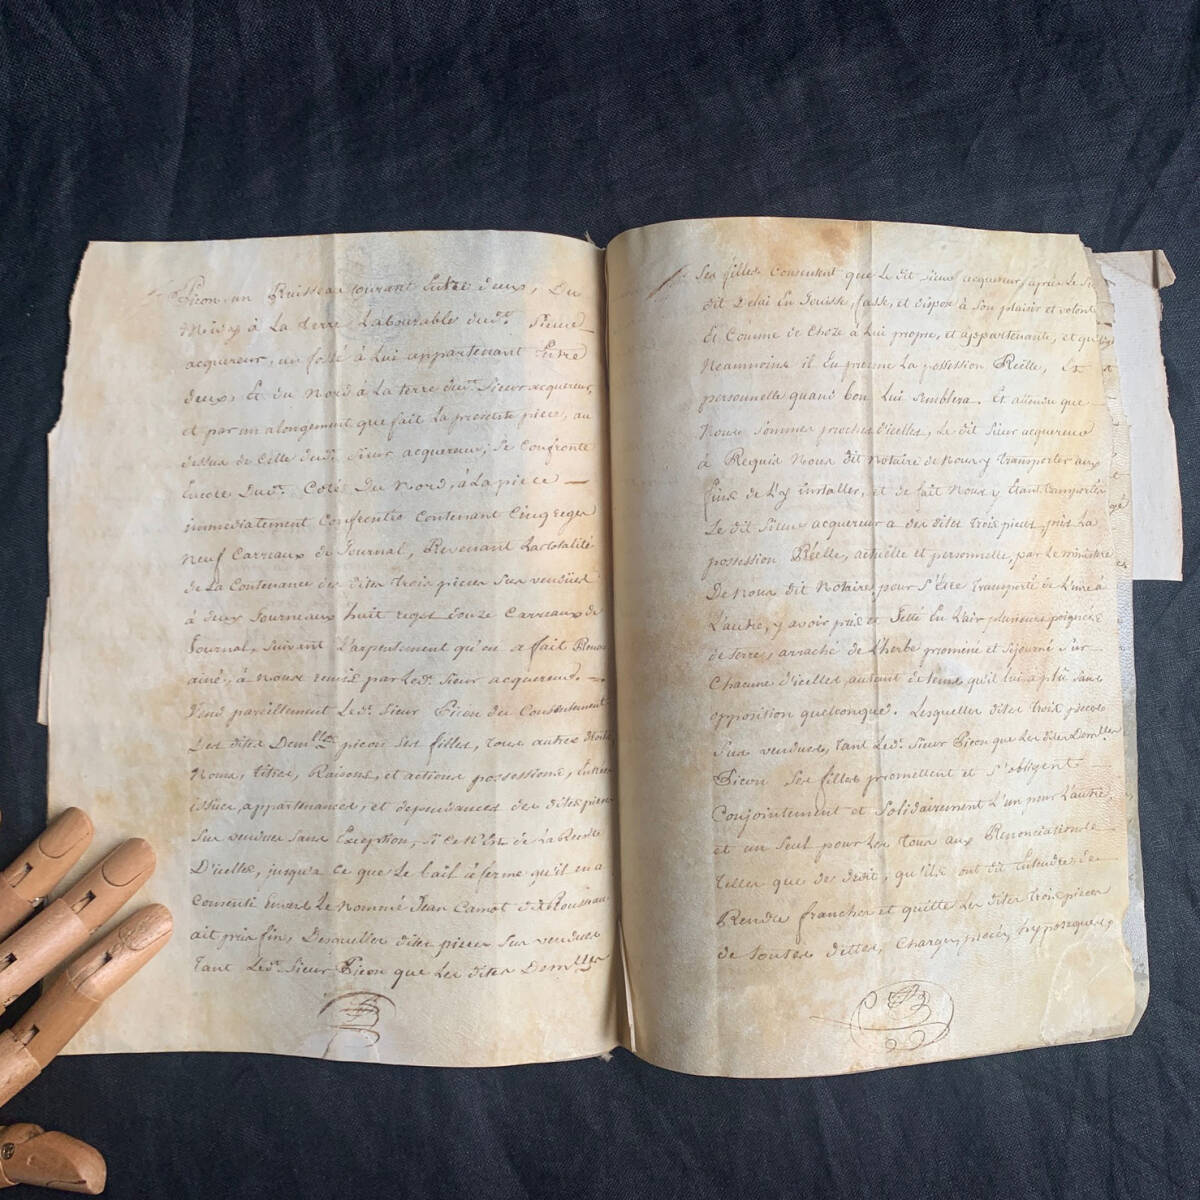 Picon, un Ruisseau courant Entre deux, Du
Midy à La terre Labourable dud.t Sieur
acquereur, un fossé à Lui appartenant Entre
deux, Et du Nord à La terre dud.t Sieur acquereur,
et par un alongement que fait La presente piece, au
dessus de Celle dud.t Sieur acquereur, Se Confronte
Encore dud.t Coté Du Nord, à La piece —
immediatement Confrontée Contenant Cinq reges
Neuf Carreaux de Journal, Revenant La totalité
de La Contenance des dites trois pieces Sus vendües
à deux Journeaux huit reges douze Carreaux de
Journal, Suivant L'arpentement qu'en a fait
ainé, à Nous remis par Led.t Sieur acquereur. —
Vend pareillement Led.t Sieur Picon du Consentement
Des dites Dem.lles picon Ses filles, tous autres droits
Noms, titres, Raisons, et actions possessions,
issües, appartenances, et dependances des dites pieces
Sus vendües Sans Exception, Si ce N'Est de La Recolte
D'icelles, jusqu'a ce que Le bail à ferme qu'il en a
Consenti Envers Le Nommé Jean Camot dit Rousseau
ait pris fin, Desquelles dites pieces Sus vendües
tant Led.t Sieur Picon que Les dites Dem.lles
Ses filles Consentent que Le dit Sieur acquereur, après Le Su
dit Delai En Jouisse, fasse, et dispose à Son plaisir et volonté
Et Comme de Choze à Lui propre, et appartenante, et que
Neanmoins il En prenne La possession Réelle, Et
personnelle quand bon Lui Semblera. Et attendu que
Nous Sommes proches d'icelles, Le dit Sieur acquereur
à Requis Nous dit Notaire de Nous y transporter aux
fins de L'y installer, et de fait Nous y Etant transportés
Le dit Sieur acquereur a des dites trois pieces pris La
possession Réelle, actuelle et personnelle, par Le ministere
De Nous dit Notaire, pour S'Etre transporté de L'une à
L'autre, y avoir pris et Jetté En L'air plusieurs poignées
de terre, arraché de L'herbe promené et Séjourné Sur
Chacune d'icelles, autant de tems qu'il lui a plû Sans
opposition quelconque. Lesquelles dites trois pieces
Sus vendües, tant Led.t Sieur Picon que Les dites Dem.lles
Picon Ses filles promettent et S'obligent —
Conjointement et Solidairement L'un pour L'autre,
et un Seul pour Le Tous aux Renonciations —
telles que de droit, qu'ils ont dit Entendre de
Rendre franches et quitte Les dites trois pieces
de toutes dettes, Charges, procés, hypoteques,